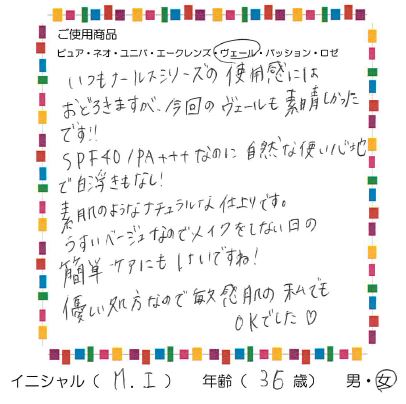 ご使用商品
ピュア・ネオ・ユニバ・エークレンズ・ヴェール・パッション・ロゼ
いつもナールスシリーズの使用感には
おどろきますが、今回のヴェールも素晴しかった
です!!
SPF40/PA+++なのに自然な使い心地
で白浮きもなし!
素肌のようなナチュラルな仕上りです。
うすいベージュなのでメイクをしない日の
簡単ケアにもいいですね!
優しい処方なので敏感肌の私でも
OKでした♡
イニシャル( M.I ) 年齢( 36 歳) 男・女